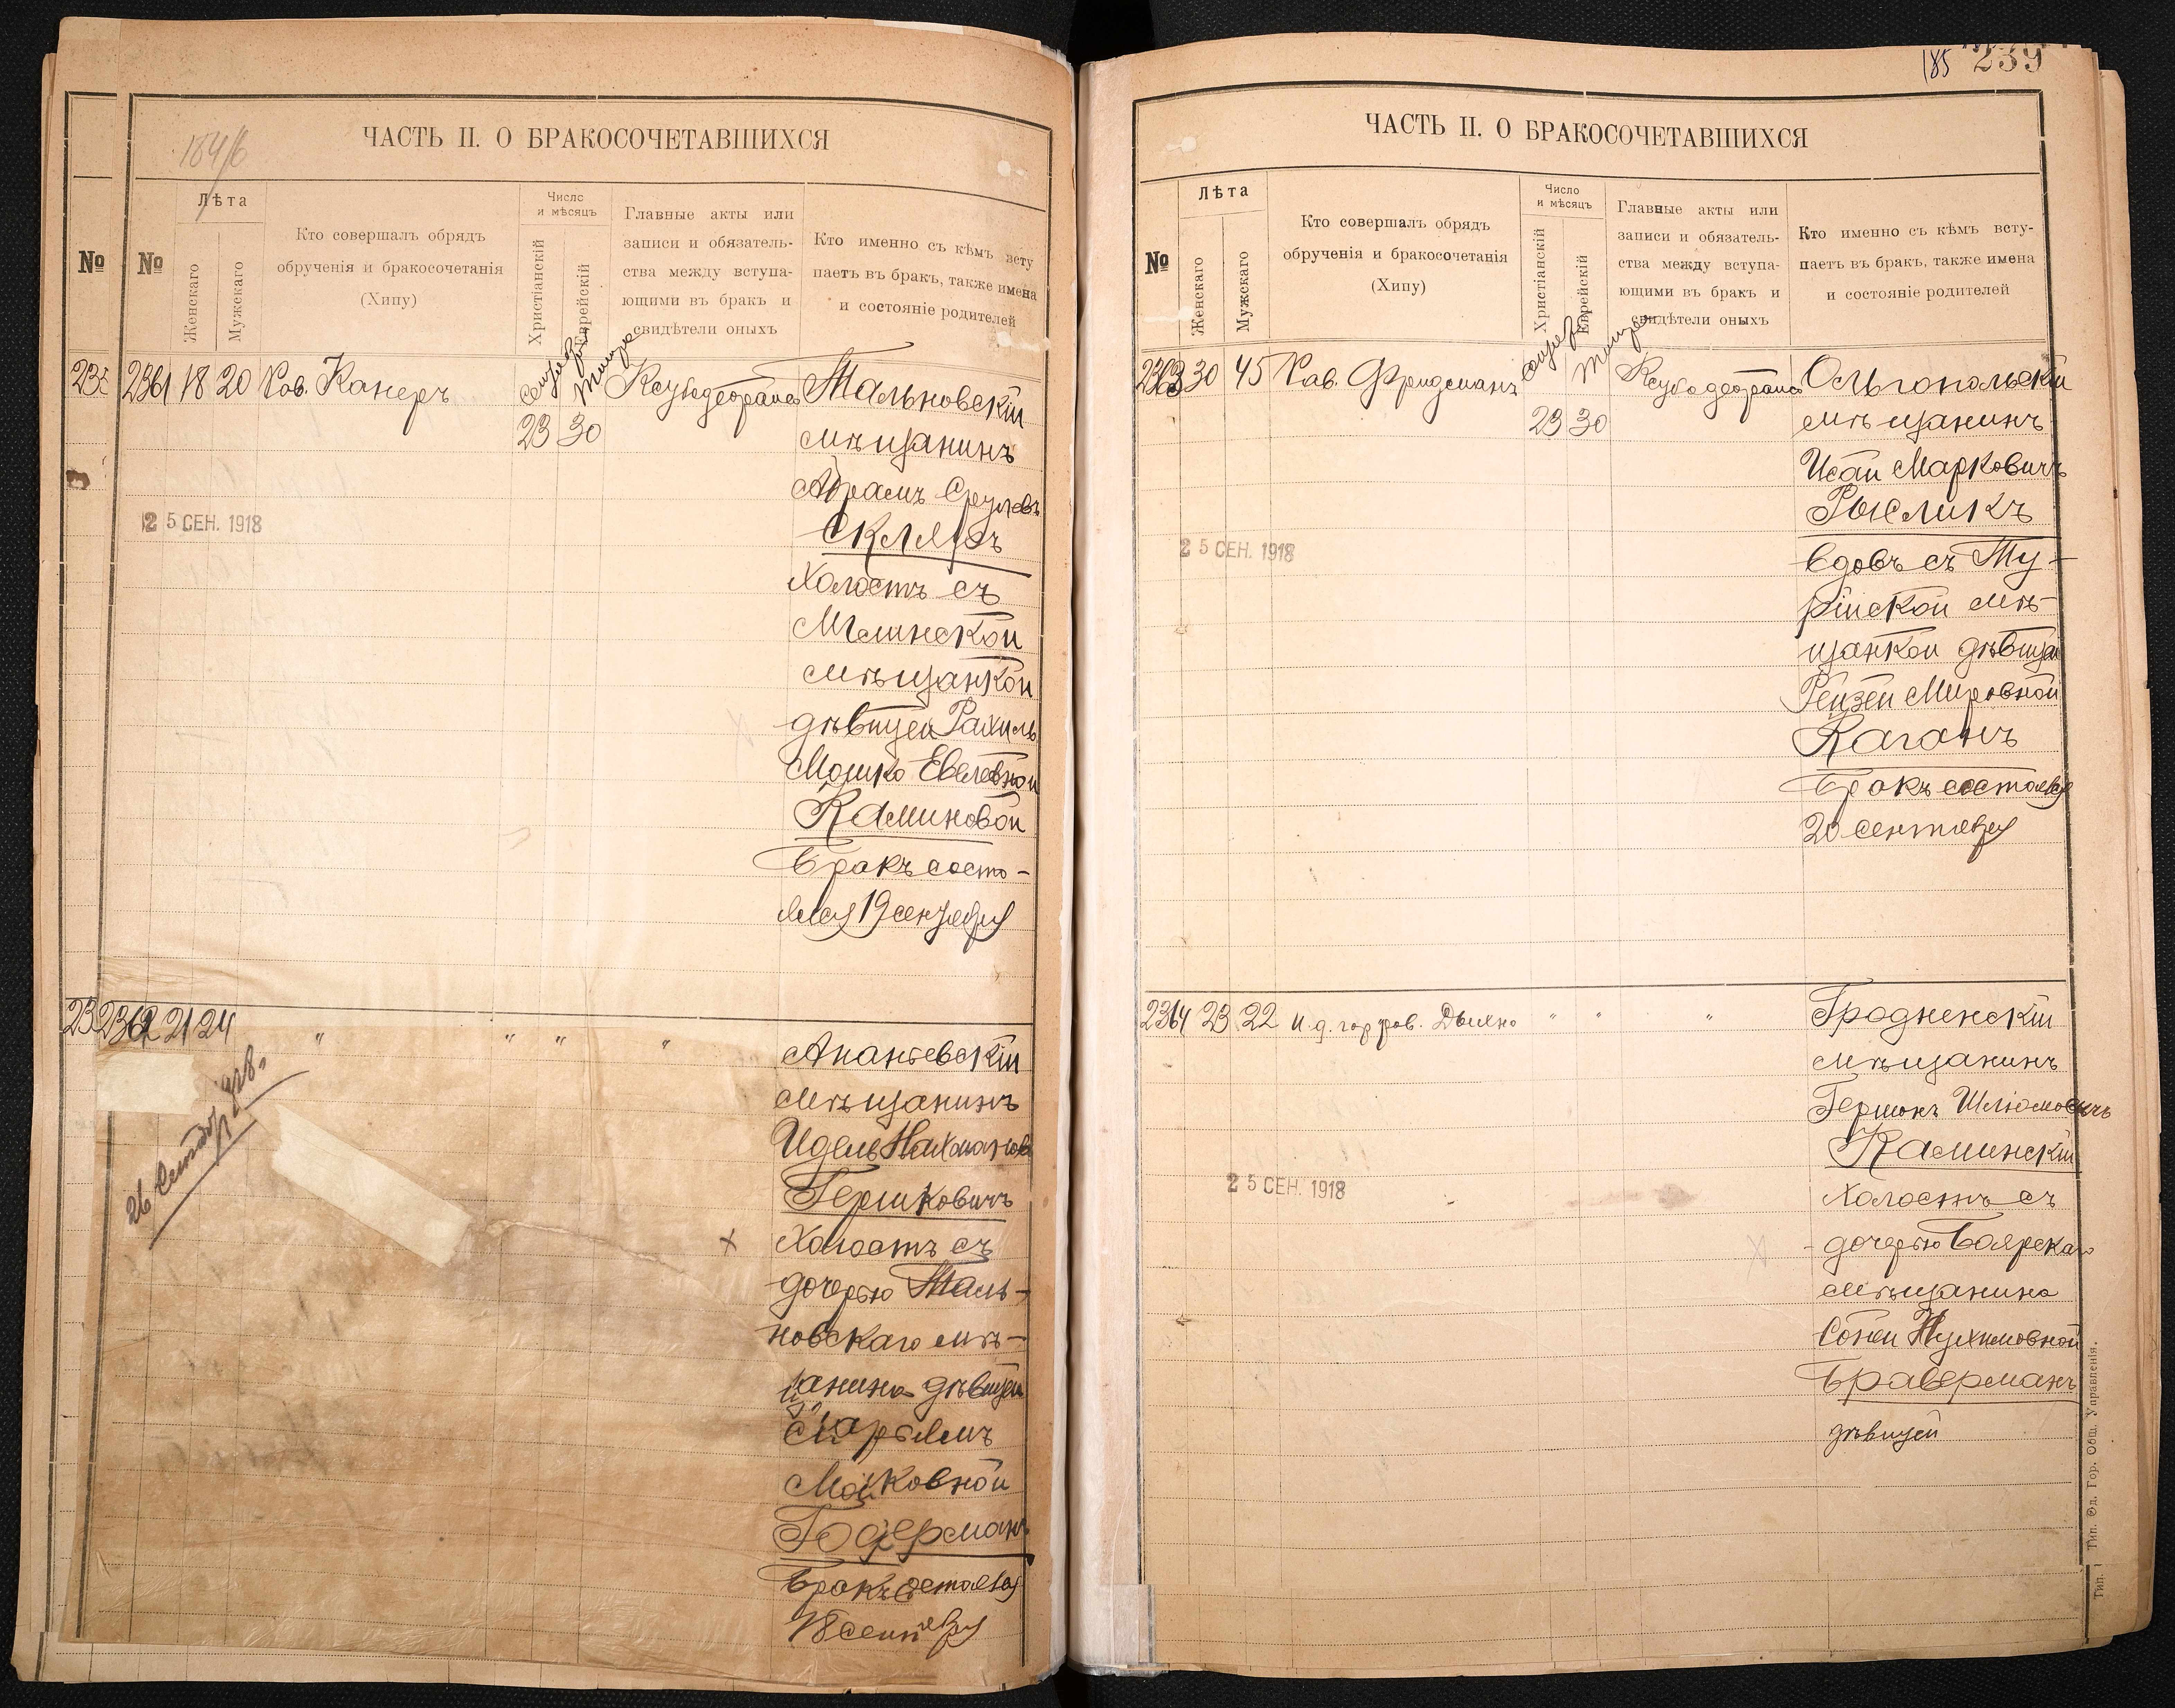 184/6
ЧАСТЬ II. О БРАКОСОЧЕТАВШИХСЯ
№
№
Лѣта
Женскаго
Мужскаго
Кто совершалъ обрядъ
обрученія и бракосочетанія
(Хипу)
Число
и мѣсяцъ
Христіанскій
Еврейскій
Главные акты или
записи и обязатель-
ства между вступа-
ющими въ бракъ и
свидѣтели оныхъ
Кто именно съ кѣмъ всту
паетъ въ бракъ, также имена
и состояніе родителей
2361 18 20 Рав. Канеръ
23 30
Тальновскій
мѣщанинъ
Абрамъ Срулевъ
Скляръ
холостъ съ
мѣщанкой
дѣвицей Рахиль
Мошко Евелевной
Каминовой
Бракъ состо-
ялся 19 сентября
25 СЕН. 1918
2362 21 24 " " " "
26 Сентяб. 918.
Ананьевскій
мѣщанинъ
Идель Нахманов
Гершковичъ
Холостъ съ
дочерью Таль-
новскаго мѣ-
щанина дѣвицей
Марьямъ
Мошковной
Бракъ состоялся
18 сентября
185 239
ЧАСТЬ II. О БРАКОСОЧЕТАВШИХСЯ
№
Лѣта
Женскаго
Мужскаго
Кто совершалъ обрядъ
обрученія и бракосочетанія
(Хипу)
Число
и мѣсяцъ
Христіанскій
Еврейскій
Главные акты или
записи и обязатель-
ства между вступа-
ющими въ бракъ и
свидѣтели оныхъ
Кто именно съ кѣмъ всту-
паетъ въ бракъ, также имена
и состояніе родителей
2363 30 45 Рав. Фридманъ
23 30
Ольгопольскій
мѣщанинъ
Исай Марковичъ
Рыкликъ
вдовъ съ Ту-
рійской мѣ-
щанкой дѣвицей
Рейзей Мееровной
Каганъ
Бракъ состоялся
20 сентября
25 СЕН. 1918
2364 23 22 И.д. гор. рав. Дыхно " " "
Гродненскій
мѣщанинъ
Гершонъ Шліомовичъ
Каминскій
холостъ съ
дочерью Боярскаго
мѣщанина
Соней Нухимовной
Браверманъ
дѣвицей
25 СЕН. 1918
Тип. Од. Гор. Общ. Управленія.
Тип.